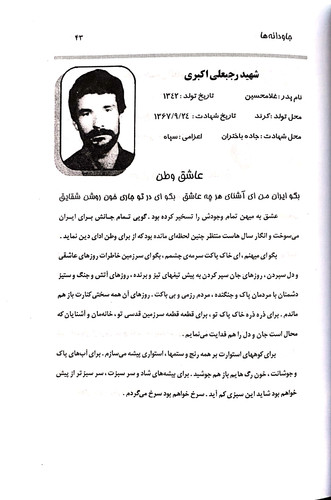 جاودانه‌ها
۴۳
شهید رجبعلی اکبری
نام پدر : غلامحسین تاریخ تولد : ۱۳۴۲
محل تولد : کرند تاریخ شهادت : ۱۳۶۷/۹/۲۴
محل شهادت : جاده باختران اعزامی : سپاه
عاشق وطن
بگو ایران من ای آشنای هر چه عاشق بگو ای در تو جاری خون روشن شقایق
عشق به میهن تمام وجودش را تسخیر کرده بود . گویی تمام جانش برای ایران
می‌سوخت و انگار سال هاست منتظر چنین لحظه‌ای مانده بود که از برای وطن ادای دین نماید .
بگو ای میهنم ، ای خاک پاکت سرمه‌ی چشمم ، بگو ای سرزمین خاطرات روزهای عاشقی
و دل سپردن ، روزهای جان سپر کردن به پیش تیغهای تیز و برنده ، روزهای آتش و جنگ و ستیز
دشمنان با مردمان پاک و جنگنده ، مردم رزمی و بی باکت . روزهای آن همه سختی کنارت باز هم
ماندم . برای ذره ذره خاک پاک تو ، برای قطعه قطعه سرزمین قدسی تو ، خانه‌مان و آشنایان که
محال است جان و دل را هم فدایت می‌نمایم .
برای کوههای استوارت بر همه رنج و ستمها ، استواری پیشه می‌سازم . برای آب‌های پاک
و جوشانت ، خون رگ هایم باز هم جوشید . برای بیشه‌های شاد و سر سبزت ، سر سبز تر از پیش
خواهم بود شاید این سبزی کم آید . سرخ خواهم بود سرخ می‌گردم .